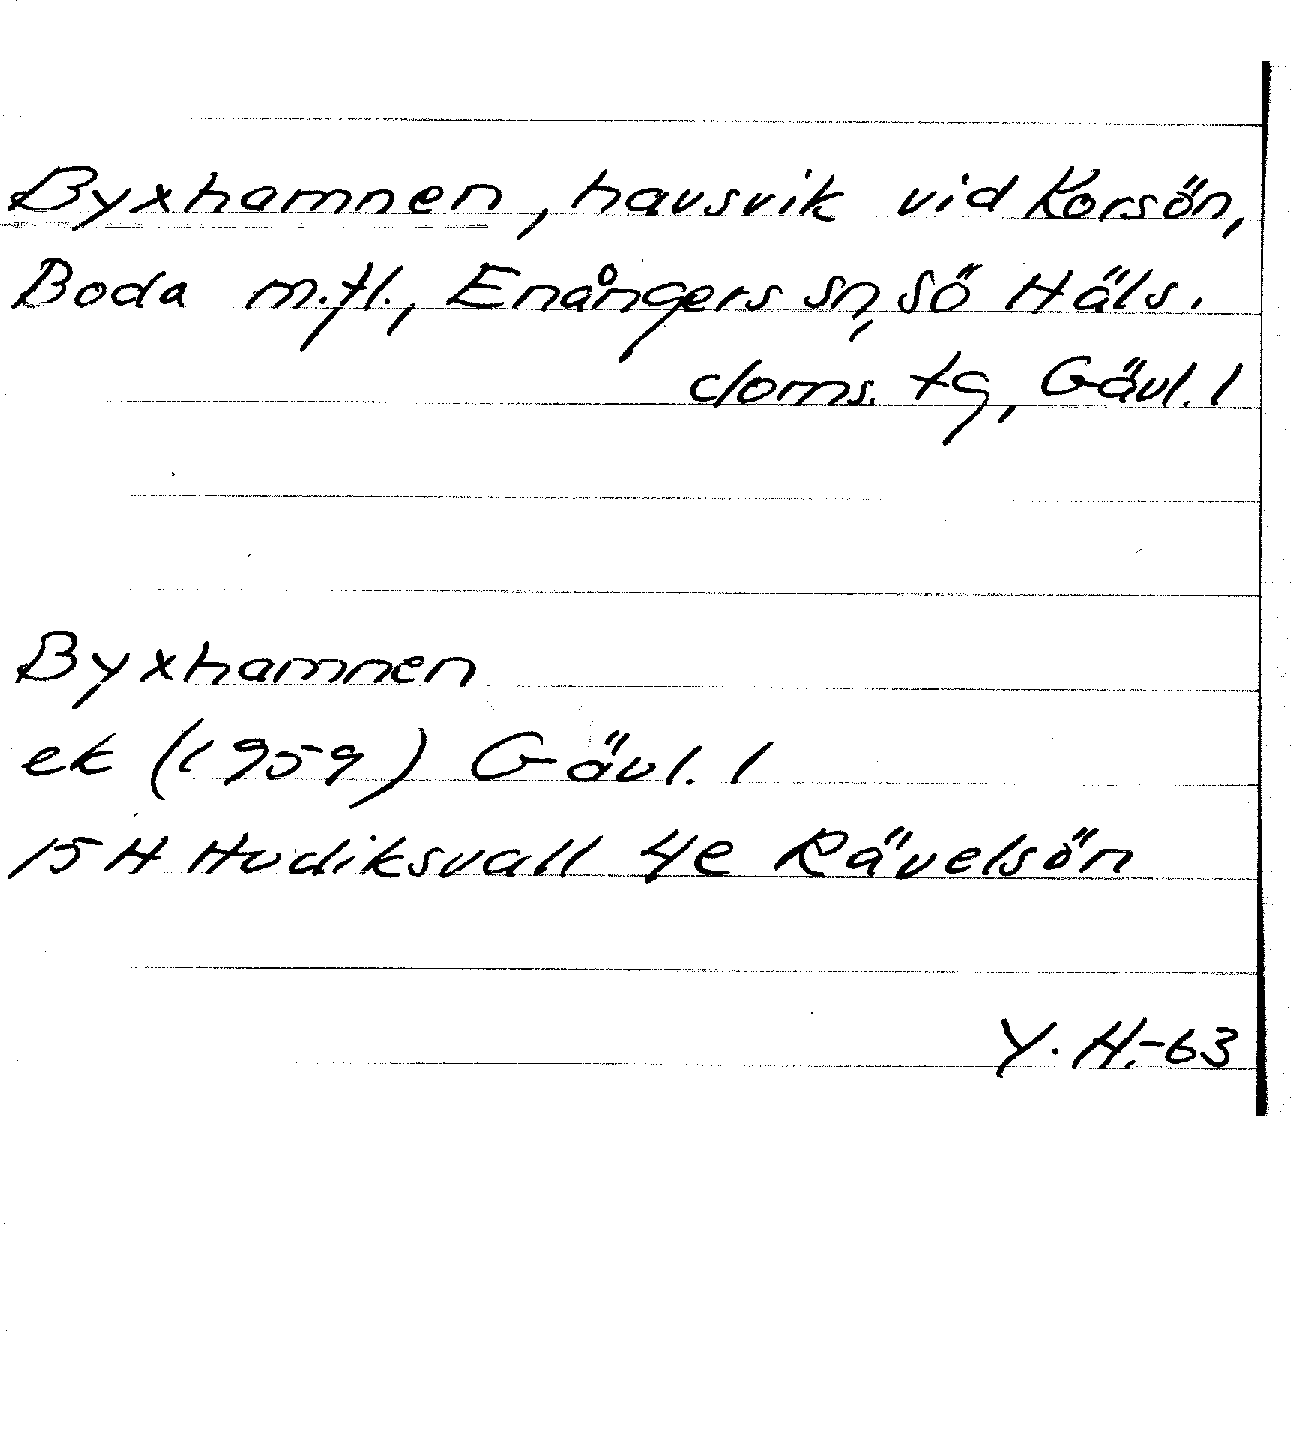 Byxhamnen, havsvik vid Korsön,
Boda m.fl., Enångers sn, Sö Häls.
doms. tg, Gävl. l
Byxhamnen
ek (1959) Gävl. l
15 H Hudiksvall 4e Rävelsön
Y. H.-63